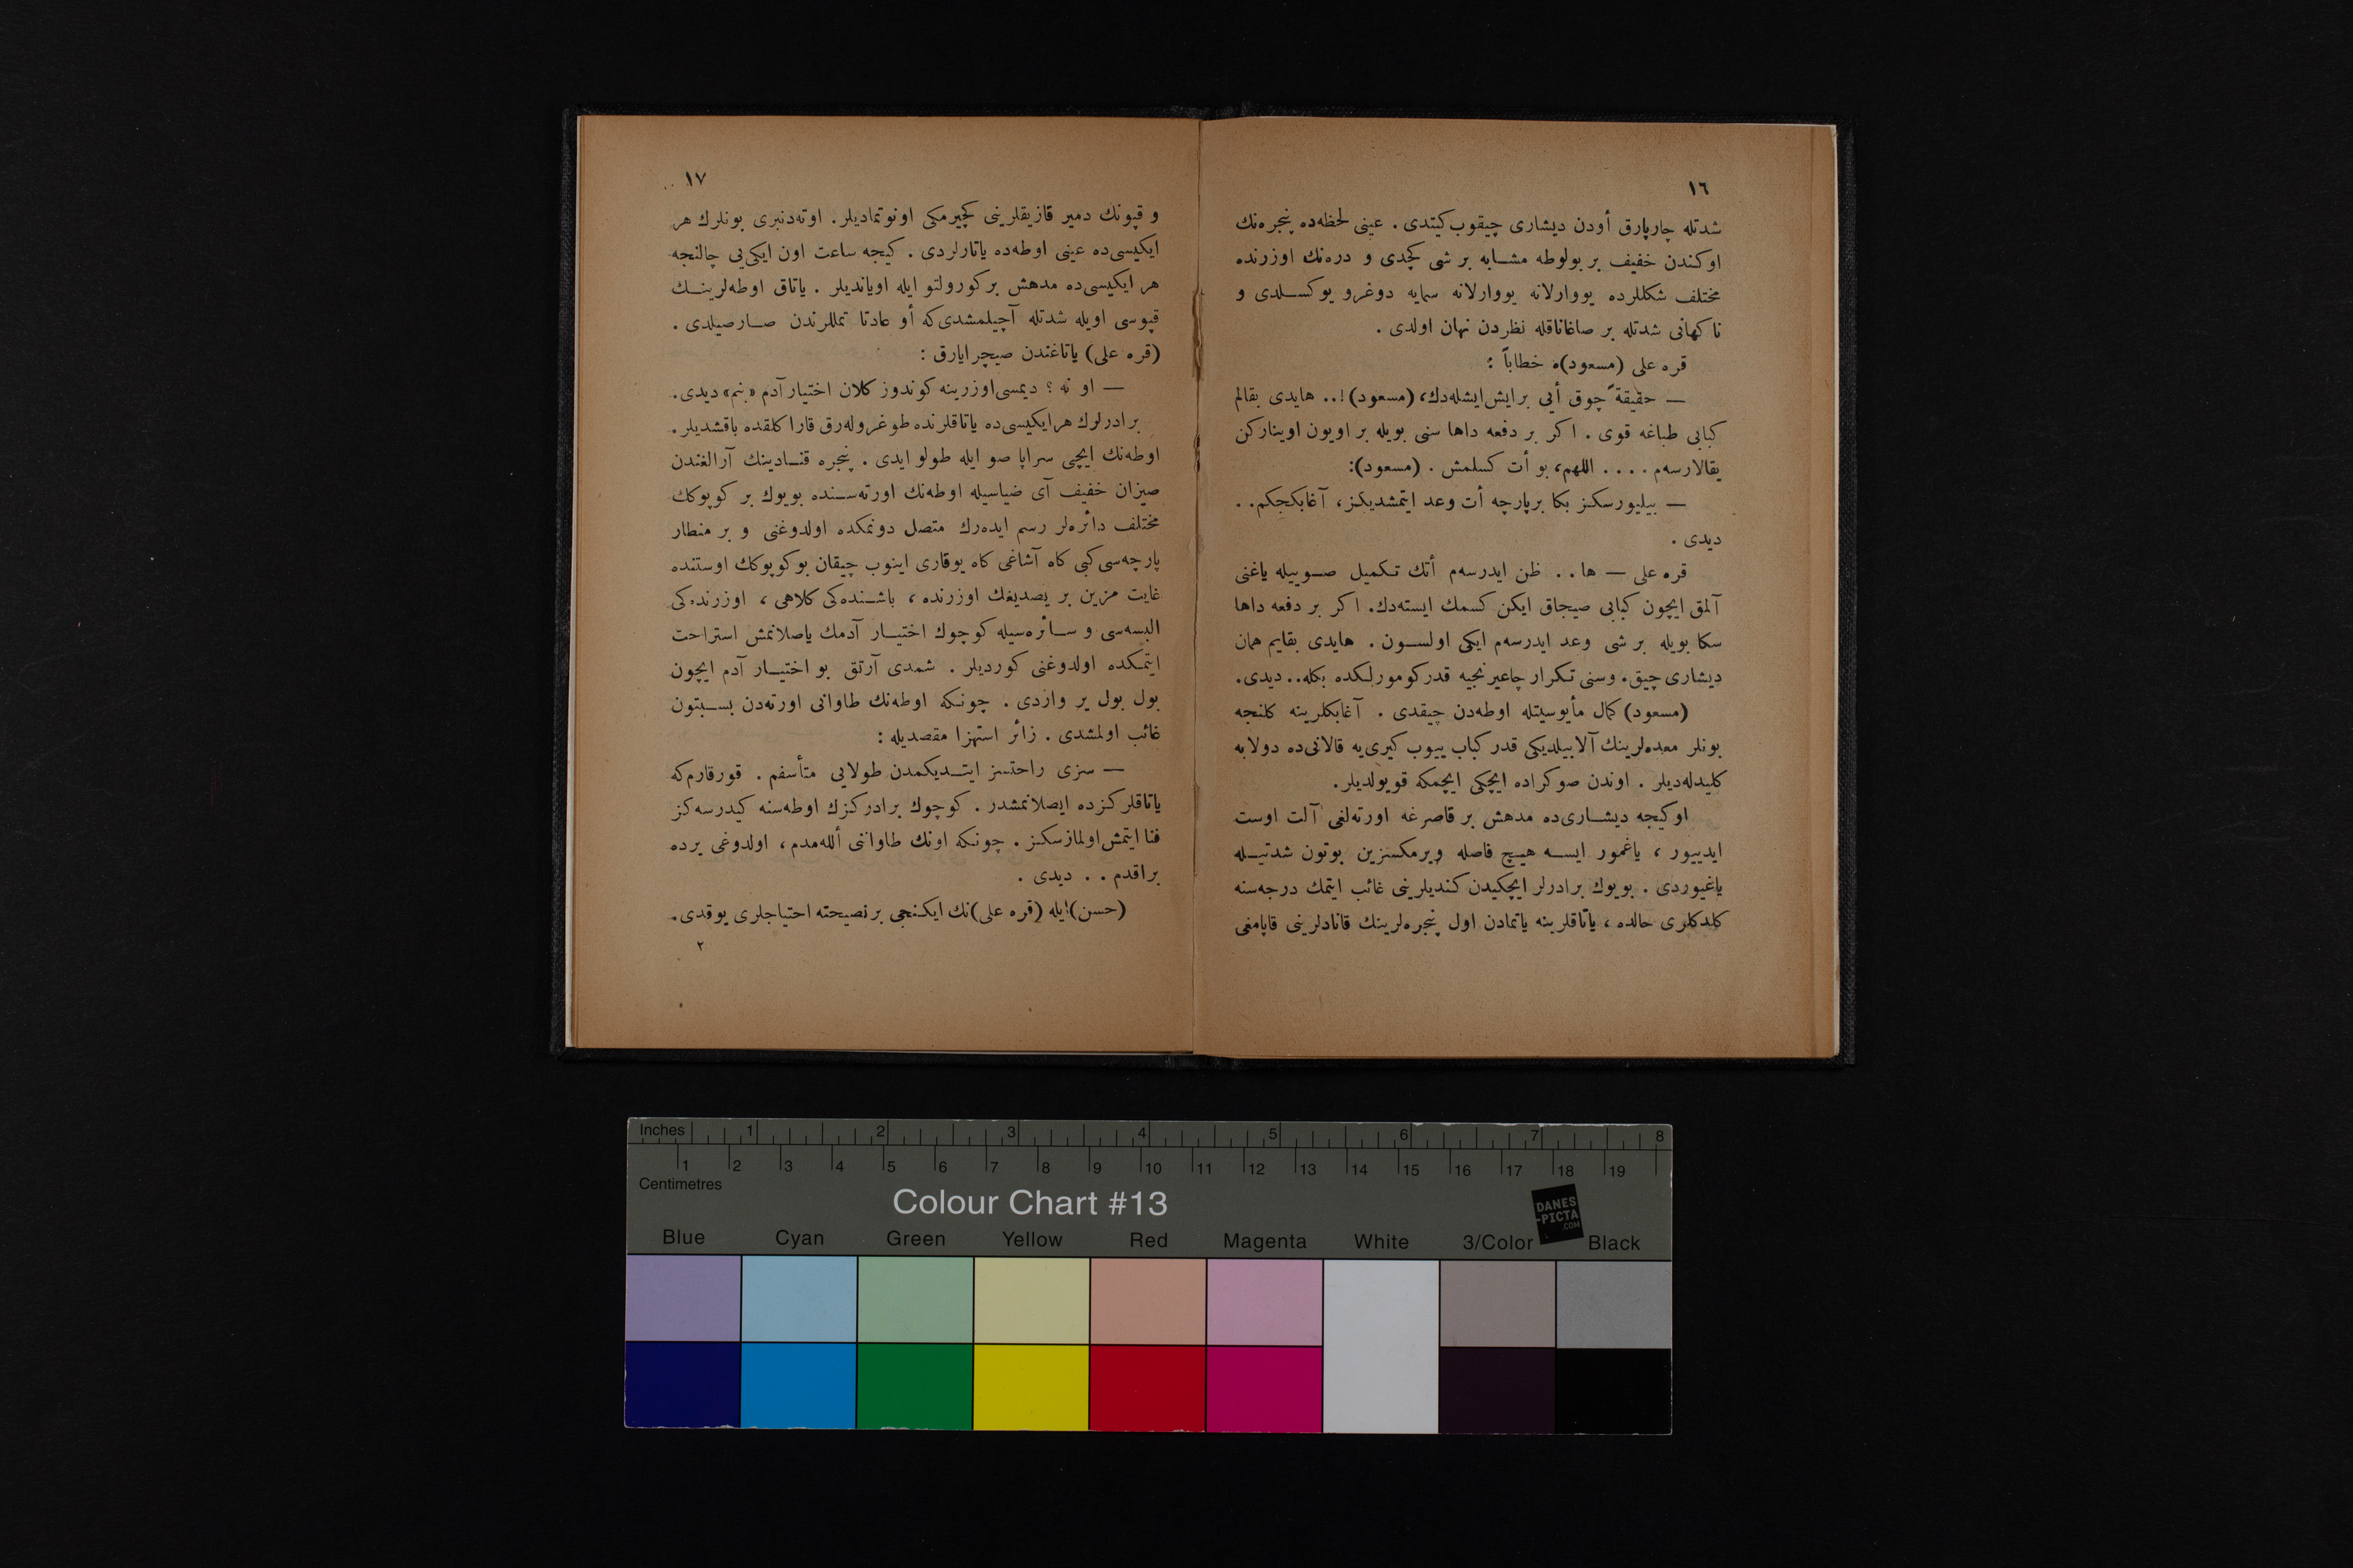 ١٦
شدتله چارپارق أودن ديشارى چيقوب كيتدى . عينى لحظه‌ده پنجره‌نك
اوكندن خفيف بر بولوطه مشابه بر شى كچدى و دره‌نك اوزرنده
مختلف شكللرده يووارلانه يووارلانه سمايه دوغرو يوكسلدى و
ناكهانى شدتله بر صاغاناقله نظردن نهان اولدى .
قره على (مسعود)ه خطاباً :
— حقيقةً چوق أيى برايش ايشله‌دك، (مسعود)!.. هايدى بقالم
كبابى طباغه قوى . اكر بر دفعه داها سنى بويله بر اويون اويناركن
يقالارسه‌م .... اللهم، بو أت كسلمش . (مسعود):
— بيليورسكز بكا برپارچه أت وعد ايتمشديكز، آغابكجكم..
ديدى .
قره على — ها.. ظن ايدرسه‌م أتك تكميل صوييله ياغنى
آلمق ايچون كبابى صيجاق ايكن كسمك ايسته‌دك. اكر بر دفعه داها
سكا بويله بر شى وعد ايدرسه‌م ايكى اولسون . هايدى بقايم همان
ديشارى چيق. وسنى تكرار چاغيرنجيه قدر كومورلكده بكله.. ديدى.
(مسعود) كمال مأيوسيتله اوطه‌دن چيقدى . آغابكلرينه كلنجه
بونلر معده‌لرينك آلابيلديكى قدر كباب ييوب كيرى‌يه قالانى‌ده دولابه
كليدله‌ديلر . اوندن صوكراده ايچكى ايچمكه قويولديلر.
اوكيجه ديشارى‌ده مدهش بر قاصرغه اورته‌لغى آلت اوست
ايدييور ، ياغمور ايسه هيچ فاصله ويرمكسزين بوتون شدتيله
ياغيوردى . بويوك برادرلر ايچكيدن كنديلرينى غائب ايتمك درجه‌سنه
كلدكلرى حالده ، ياتاقلرينه ياتمادن اول پنجره‌لرينك قانادلرينى قاپامغى
١٧
و قپونك دمير قازيقلرينى كچيرمكى اونوتماديلر. اوته‌دنبرى بونلرك هر
ايكيسى‌ده عينى اوطه‌ده ياتارلردى . كيجه ساعت اون ايكى‌يى چالنجه
هر ايكيسى‌ده مدهش بر كورولتو ايله اوياندیلر . ياتاق اوطه‌لرينك
قپوسى اويله شدتله آچيلمشدى‌كه أو عادتا تمللرندن صارصيلدى .
(قره على) ياتاغندن صيچرايارق :
— او نه ؟ ديمسى اوزرينه كوندوز كلان اختيار آدم «بنم» ديدى.
برادرلرك هرايكيسى‌ده ياتاقلرنده طوغروله‌رق قارا كلقده باقشديلر.
اوطه‌نك ايچى سراپا صو ايله طولو ايدى . پنجره قنادينك آرالغندن
صيزان خفيف آى ضياسيله اوطه‌نك اورته‌سنده بويوك بر كوپوكك
مختلف دائره‌لر رسم ايده‌رك متصل دونمكده اولدوغنى و بر منطار
پارچه‌سى كبى كاه آشاغى كاه يوقارى اينوب چيقان بوكوپوكك اوستنده
غايت مزين بر يصديغك اوزرنده ، باشنده‌كى كلاهى ، اوزرنده‌كى
البسه‌سى و سائره‌سيله كوچوك اختيار آدمك ياصلانمش استراحت
ايتمكده اولدوغنى كورديلر . شمدى آرتق بو اختيار آدم ايچون
بول بول ير واردى . چونكه اوطه‌نك طاوانى اورته‌دن بسبتون
غائب اولمشدى . زائر استهزا مقصديله :
— سزى راحتسز ايتديكمدن طولايى متأسفم . قورقارم‌كه
ياتاقلركزده ايصلانمشدر . كوچوك برادركزك اوطه‌سنه كيدرسه‌كز
فنا ايتمش اولمازسكز . چونكه اونك طاواننى أللمه‌دم ، اولدوغى يرده
براقدم .. ديدى .
(حسن) ايله (قره على)نك ايكنجى بر نصيحته احتياجلرى يوقدى.
٢
Inches 1 2 3 4 5 6 7 8
1 2 3 4 5 6 7 8 9 10 11 12 13 14 15 16 17 18 19
Centimetres
Colour Chart #13
DANES
-PICTA
.COM
Blue Cyan Green Yellow Red Magenta White 3/Color Black